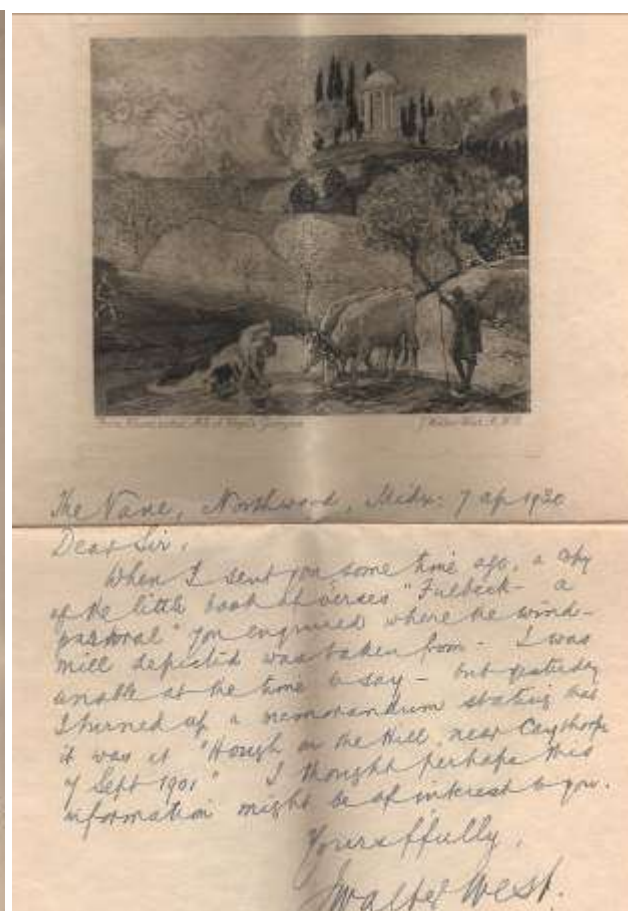 From Illuminated MS of Virgil's Georgics J Walter West R.W.S.
The Vane, Northwood, Midx: 7 ap 1930
Dear Sir,
When I sent you some time ago, a copy
of the little book of verses "Fulbeck - a
pastoral" you enquired where the wind-
mill depicted was taken from - I was
unable at the time to say - but yesterday
I turned up a memorandum stating that
it was at "Hough on the Hill, near Caythorpe
7 Sept 1901" I thought perhaps this
information might be of interest to you.
Yours ffully,
J Walter West.